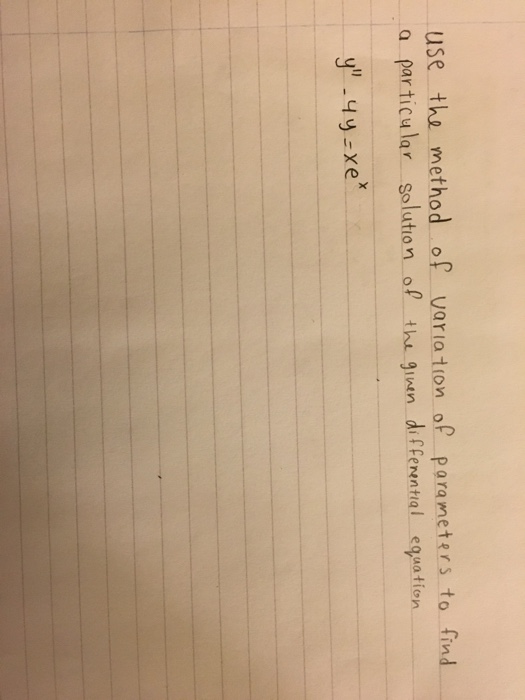 use the method of variation of parameters to find
a particular solution of the given differential equation
y" - 4y = xeˣ